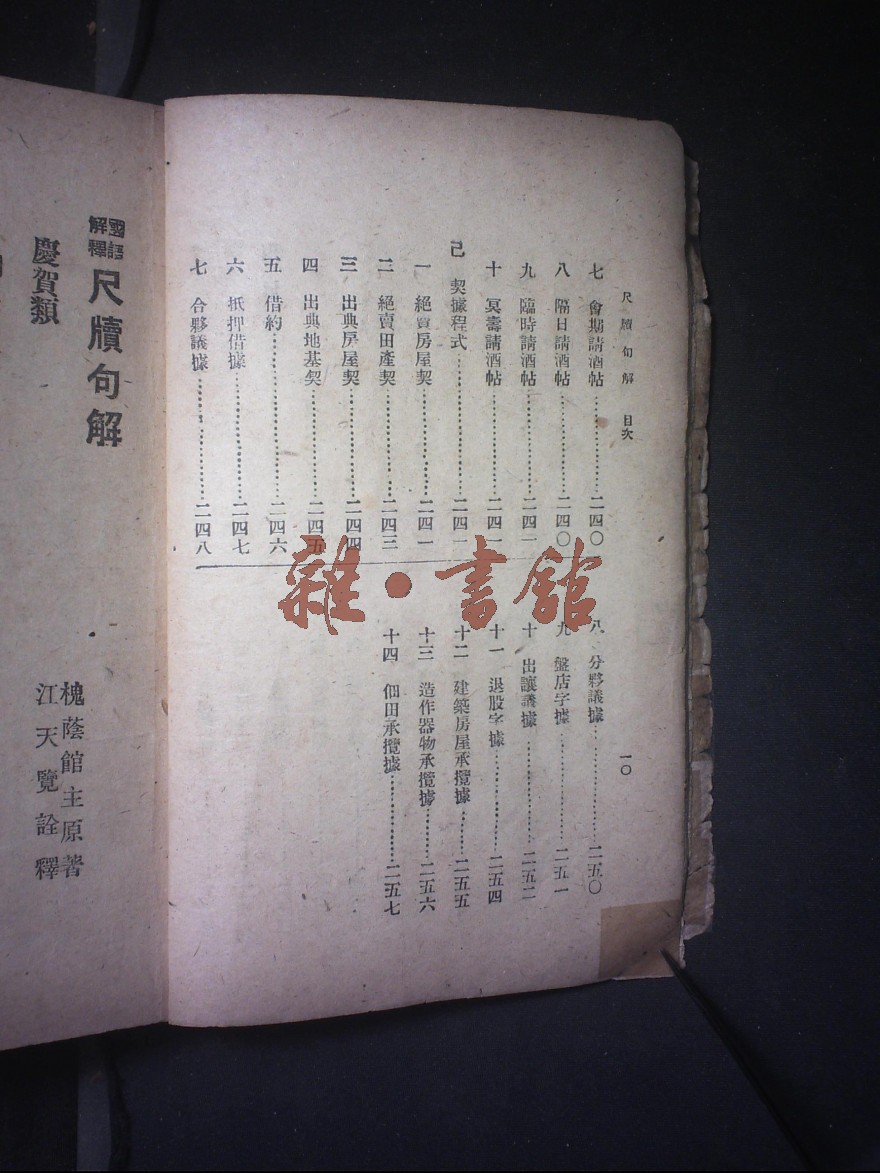 尺牘句解 目次 一〇
七 會期請酒帖 二四〇
八 隔日請酒帖 二四〇
九 臨時請酒帖 二四一
十 冥壽請酒帖 二四一
己 契據程式 二四一
一 絕賣房屋契 二四一
二 絕賣田產契 二四三
三 出典房屋契 二四四
四 出典地基契 二四五
五 借約 二四六
六 抵押借據 二四七
七 合夥議據 二四八
八 分夥議據 二五〇
九 盤店字據 二五一
十 出讓議據 二五二
十一 退股字據 二五四
十二 建築房屋承攬據 二五五
十三 造作器物承攬據 二五六
十四 佃田承攬據 二五七
國語解釋 尺牘句解
槐蔭館主原著
江天覽詮釋
慶賀類
雜·書館